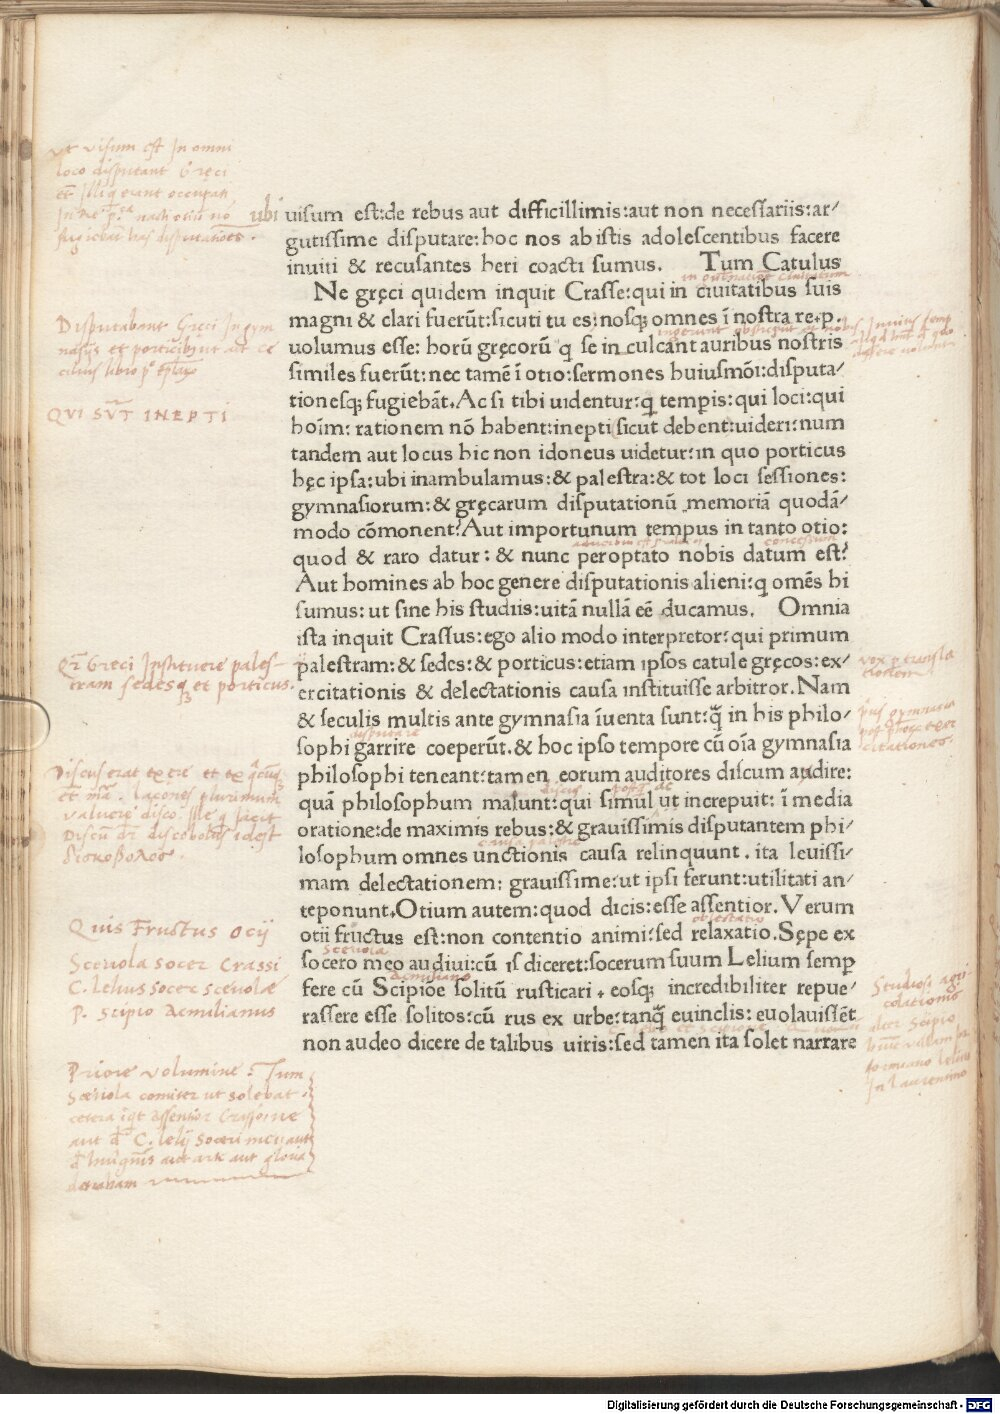 ubi uisum est:de rebus aut difficillimis:aut non necessariis:ar/
gutissime disputare:hoc nos ab istis adolescentibus facere
inuiti & recusantes heri coacti sumus. Tum Catulus
Ne gręci quidem inquit Crasse:qui in ciuitatibus suis
magni & clari fuerūt:sicuti tu es:nosq; omnes ī nostra re.p.
uolumus esse: horū gręcorū q se in culcant auribus nostris
similes fuerūt: nec tamē ī otio:sermones huiusmōi:disputa/
tionesq; fugiebāt. Ac si tibi uidentur:q temp̱is: qui loci:qui
hoīm: rationem nō habent:inepti sicut debent:uideri:num
tandem aut locus hic non idoneus uidetur:in quo porticus
hęc ipsa:ubi inambulamus:& palestra:& tot loci sessiones:
gymnasiorum:& gręcarum disputationū memoriā quodā/
modo cōmonent? Aut importunum tempus in tanto otio:
quod & raro datur: & nunc peroptato nobis datum est?
Aut homines ab hoc genere disputationis alieni:q omēs hi
sumus: ut sine his studiis:uitā nullā eē ducamus. Omnia
ista inquit Crassus:ego alio modo interpretor:qui primum
palestram:& sedes:& porticus:etiam ipsos catule gręcos:ex/
ercitationis & delectationis causa instituisse arbitror. Nam
& seculis multis ante gymnasia īuenta sunt:q̄ in his philo/
sophi garrire coeperūt.& hoc ipso tempore cū oīa gymnasia
philosophi teneant:tamen eorum auditores discum audire:
quā philosophum malunt:qui simul ut increpuit: ī media
oratione:de maximis rebus:& grauissimis disputantem phi/
losophum omnes unctionis causa relinquunt. ita leuissi/
mam delectationem: grauissime:ut ipsi ferunt:utilitati an/
teponunt. Otium autem:quod dicis:esse assentior. Verum
otii fructus est:non contentio animi:sed relaxatio. Sępe ex
socero meo audiui:cū is diceret:socerum suum Lelium semp̱
fere cū Scipiōe solitū rusticari. eosq; incredibiliter repue/
rassere esse solitos:cū rus ex urbe:tanq̄ euinclis: euolauissēt
non audeo dicere de talibus uiris:sed tamen ita solet narrare
Vt visum est In omni
loco disputant Gręci
Disputabant Gręci In gym
nasijs et porticibus
QUI SŪT INEPTI
Qr̄ Greci Instituere pales-
tram sedesq; et porticus.
δισκοβολοσ.
Quis Fructus ocij
Sceuola socer Crassi
C. Lelius socer sceuolæ
P. Scipio Aemilianus
Priore volumine: Tum
Sceuola comiter ut solebat
disputare
discus
causa palestre
Sceuola
Aemiliano
concessum
Digitalisierung gefördert durch die Deutsche Forschungsgemeinschaft - DFG